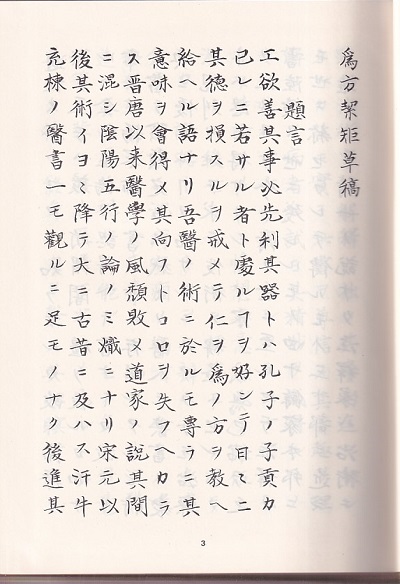 爲方絜矩草稿
題言
工欲善其事必先利其器トハ孔子ノ子貢カ
已レニ若サル者ト處ルヿヲ好ンテ日〻ニ
其德ヲ損スルヲ戒メテ仁ヲ爲ノ方ヲ教ヘ
給ヘル語ナリ吾醫ノ術ニ於ルモ專ラニ其
意味ヲ會得〆其向フトコロヲ失フヘカラ
ス晋唐以来醫學ノ風頽敗〆道家ノ說其間
ニ混シ陰陽五行ノ論ノミ熾ニナリ宋元以
後其術イヨ〻降テ大ニ古昔ニ及ハス汗牛
充棟ノ醫書一モ觀ルニ足モノナク後進其
3